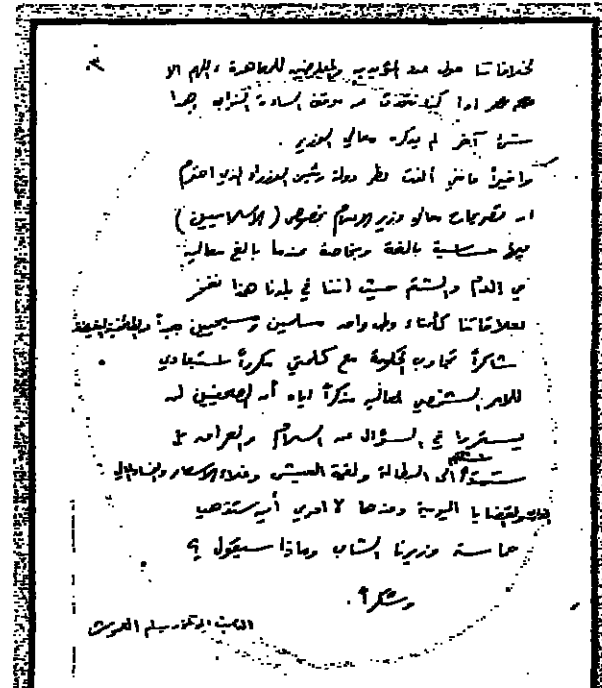 ٣.
لخلافاتنا حول عدد المؤيدين والمعارضين للمعاهدة ، اللهم الا
اذا كنا نتحدث عن موقف السادة النواب بهذا
آخر لم يذكره معالي الوزير .
واخيراً فانني ألفت نظر دولة رئيس الوزراء الذي احترم
ان تصريحات معالي وزير الاعلام بخصوص ( الاسلاميين )
فيها حساسية بالغة وبخاصة عندما بالغ معاليه
في الذم والشتم حيث اننا في بلدنا هذا نفخر
بعلاقاتنا كأبناء وطن واحد مسلمين ومسيحيين
شاكراً تجاوب الحكومة مع كلمتي مكرراً استبعادي
للامر الشخصي لمعاليه مذكراً اياه أن الصحفيين لن
يستمروا في السؤال عن السلام والعراق بل
ستمتد أسئلتهم الى البطالة ولقمة العيش وغلاء الاسعار والفساد المالي
والقضايا اليومية وعندها لا ادري أين ستذهب
حماسة وزيرنا الشاب وماذا سيقول ؟!
وشكراً .
النائب الدكتور